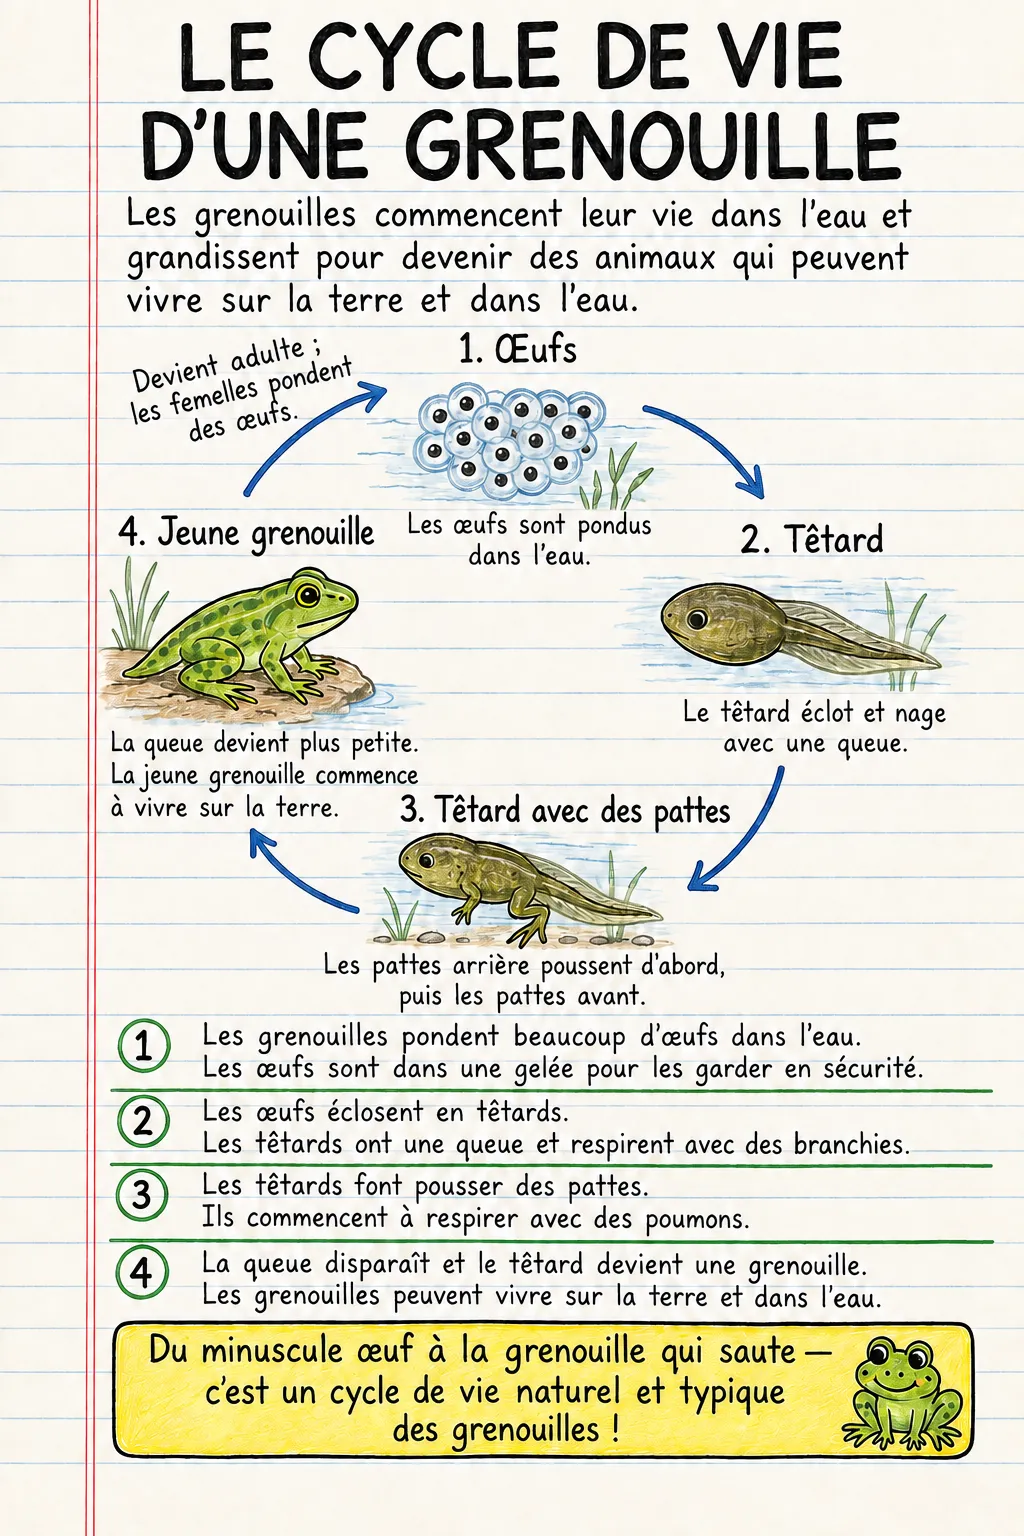 LE CYCLE DE VIE
D'UNE GRENOUILLE
Les grenouilles commencent leur vie dans l'eau et
grandissent pour devenir des animaux qui peuvent
vivre sur la terre et dans l'eau.
Devient adulte ;
les femelles pondent
des œufs.
1. Œufs
Les œufs sont pondus
dans l'eau.
2. Têtard
Le têtard éclot et nage
avec une queue.
3. Têtard avec des pattes
Les pattes arrière poussent d'abord,
puis les pattes avant.
4. Jeune grenouille
La queue devient plus petite.
La jeune grenouille commence
à vivre sur la terre.
1 Les grenouilles pondent beaucoup d'œufs dans l'eau.
Les œufs sont dans une gelée pour les garder en sécurité.
2 Les œufs éclosent en têtards.
Les têtards ont une queue et respirent avec des branchies.
3 Les têtards font pousser des pattes.
Ils commencent à respirer avec des poumons.
4 La queue disparaît et le têtard devient une grenouille.
Les grenouilles peuvent vivre sur la terre et dans l'eau.
Du minuscule œuf à la grenouille qui saute —
c'est un cycle de vie naturel et typique
des grenouilles !